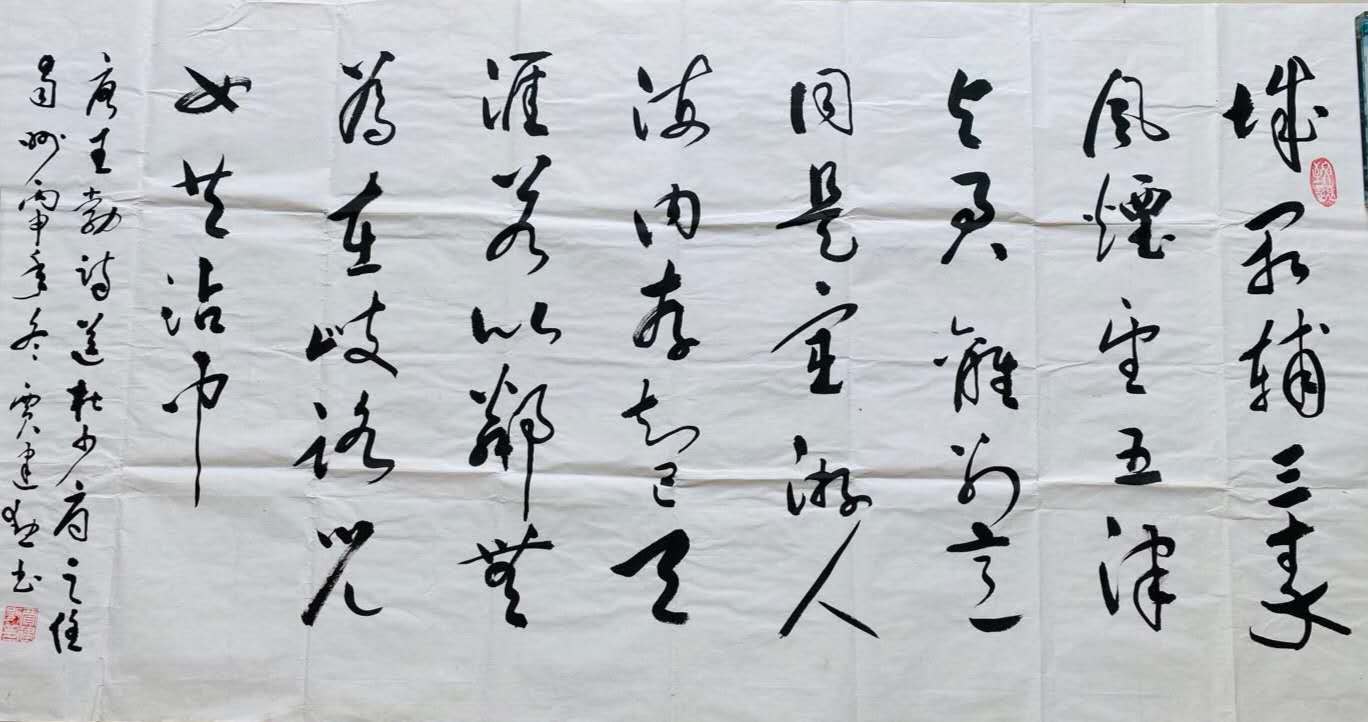 城阙辅三秦
風煙望五津
与君離别意
同是宦游人
海内存知己天
涯若比鄰無
為在歧路兒
女共沾巾
唐王勃詩送杜少府之任
蜀州丙申年冬 贾建勤书